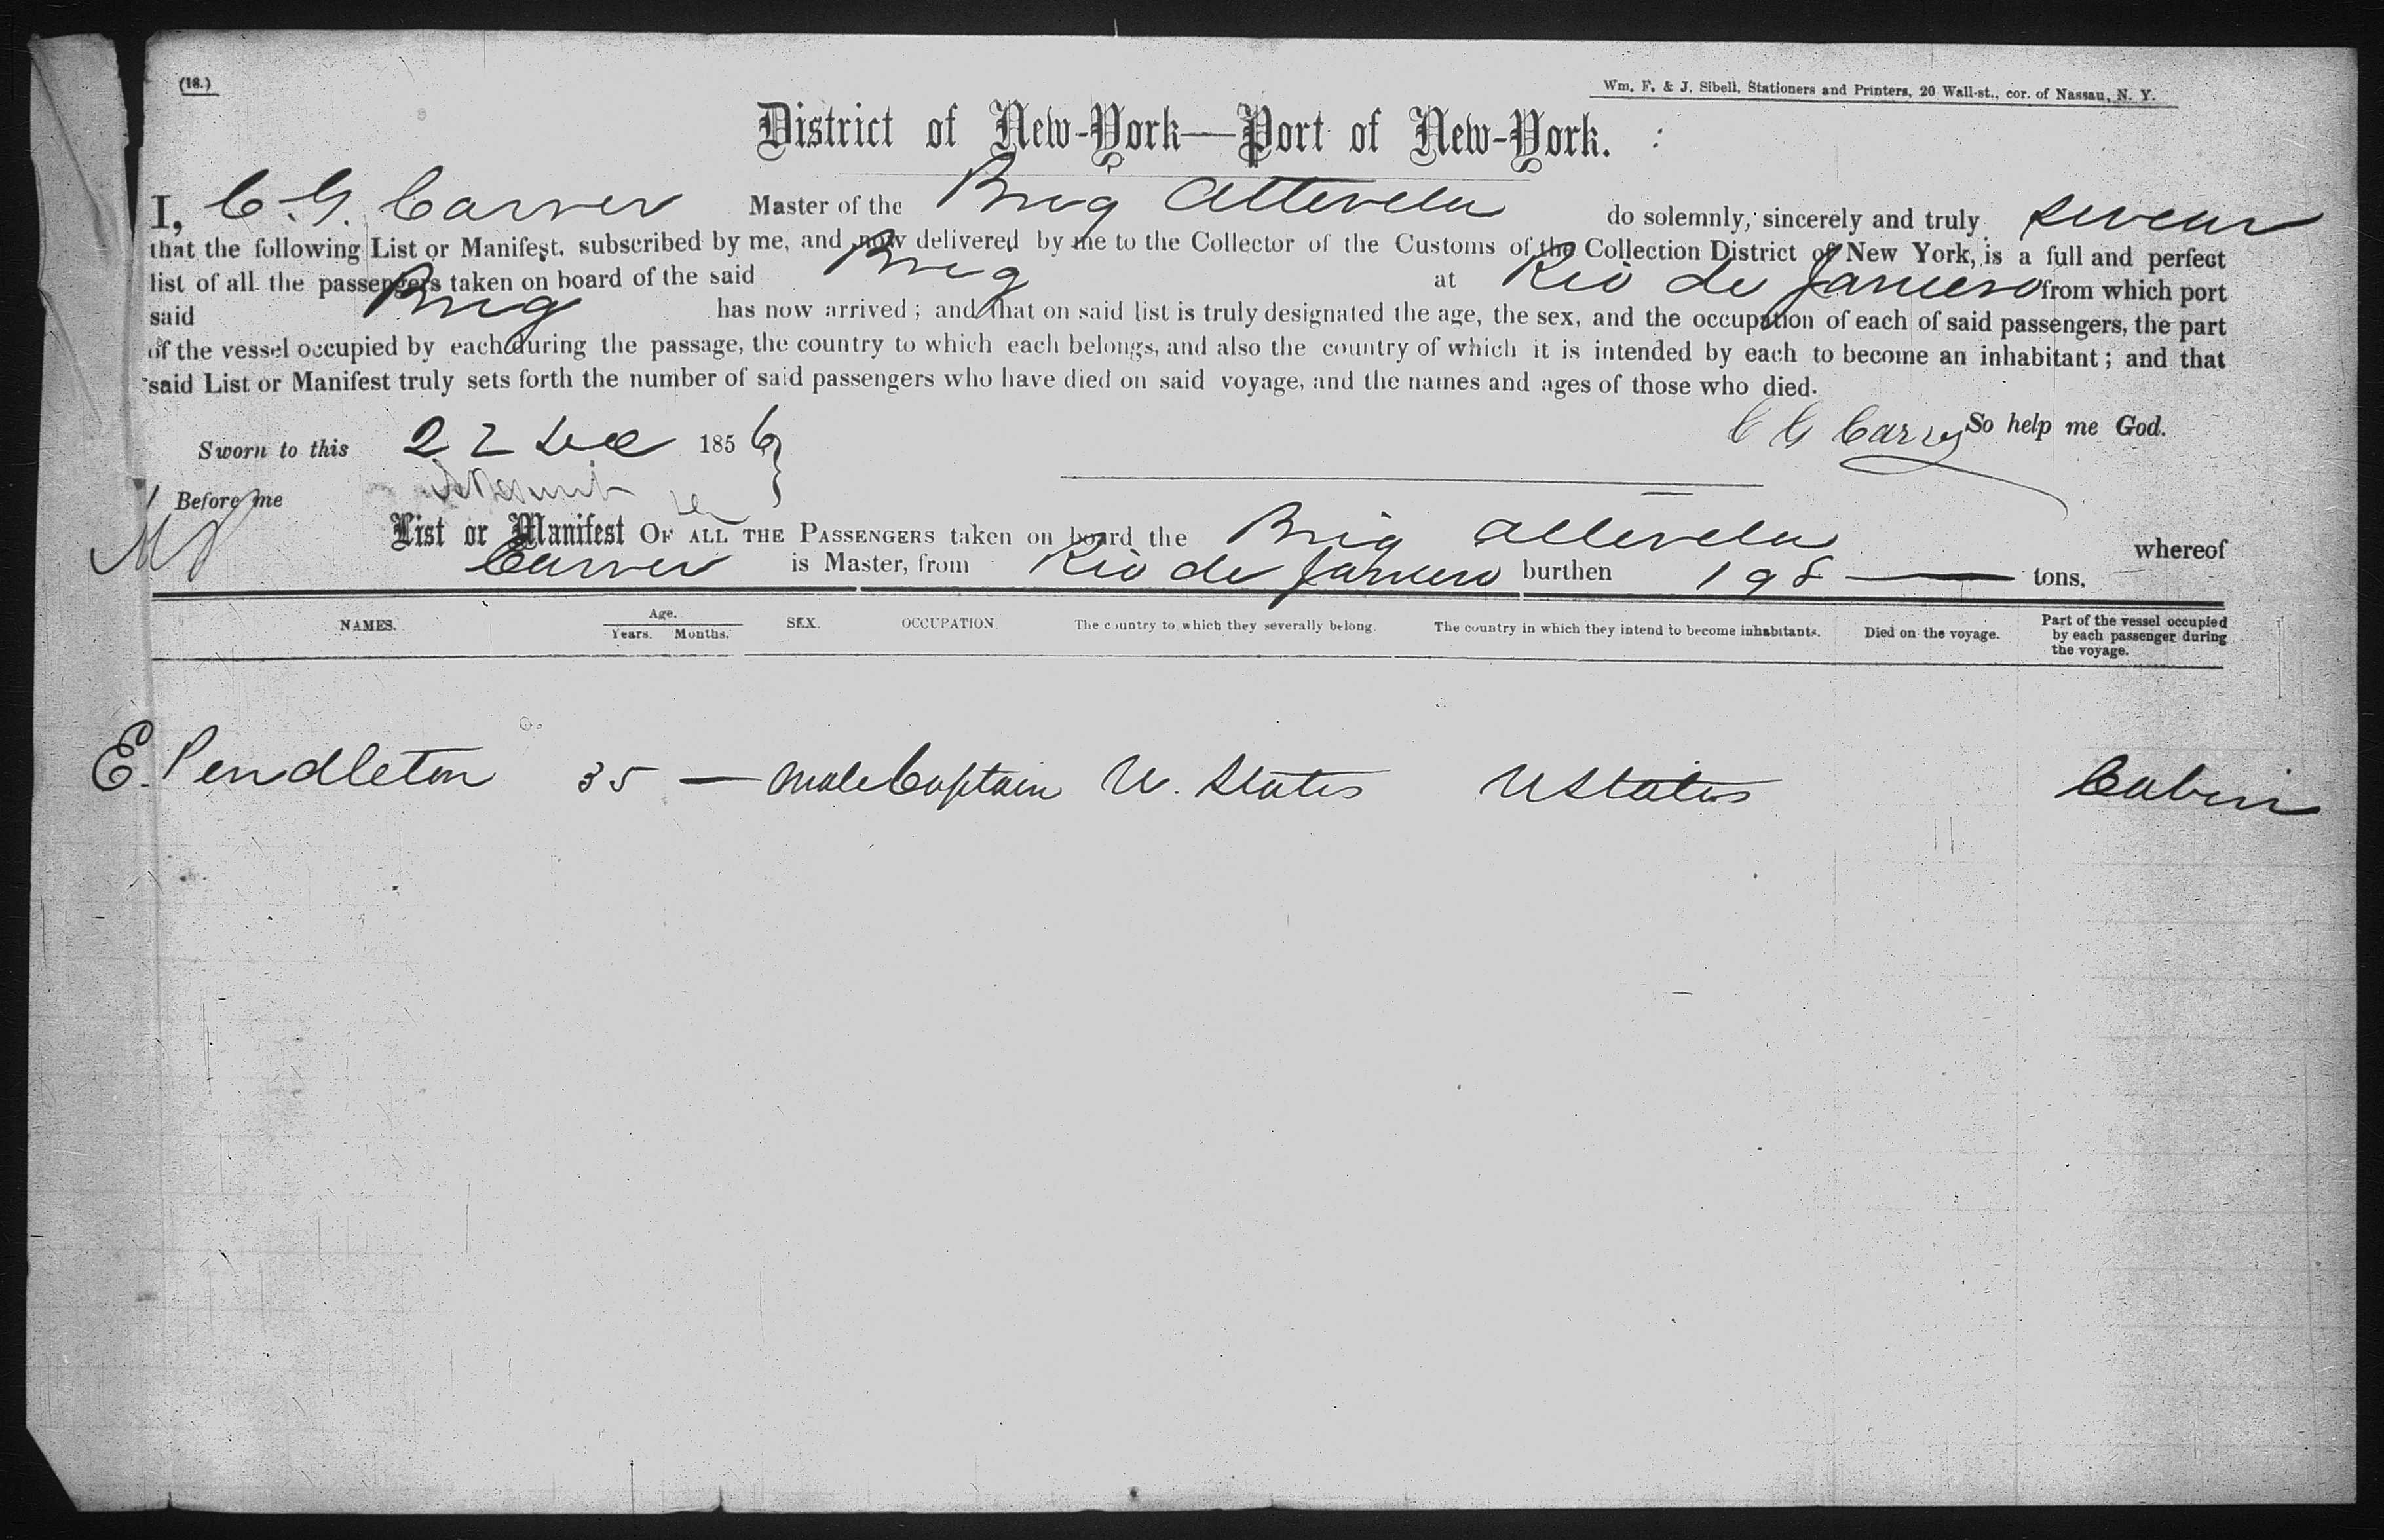 (18.)
Wm. F. & J. Sibell, Stationers and Printers, 20 Wall-st., cor. of Nassau, N. Y.
District of New-York—Port of New-York.
I, C. G. Carver Master of the Brig Attevela do solemnly, sincerely and truly swear
that the following List or Manifest, subscribed by me, and now delivered by me to the Collector of the Customs of the Collection District of New York, is a full and perfect
list of all the passengers taken on board of the said Brig at Rio de Janeiro from which port
said Brig has now arrived; and that on said list is truly designated the age, the sex, and the occupation of each of said passengers, the part
of the vessel occupied by each during the passage, the country to which each belongs, and also the country of which it is intended by each to become an inhabitant; and that
said List or Manifest truly sets forth the number of said passengers who have died on said voyage, and the names and ages of those who died.
Sworn to this 22 Dec 1856 C G Carver So help me God.
Before me
List or Manifest OF ALL THE PASSENGERS taken on board the Brig Attevela whereof
Carver is Master, from Rio de Janeiro burthen 198 — tons.
NAMES. Age. Years. Months. SEX. OCCUPATION. The country to which they severally belong. The country in which they intend to become inhabitants. Died on the voyage. Part of the vessel occupied by each passenger during the voyage.
E. Pendleton 35 — male Captain U. States U States Cabin